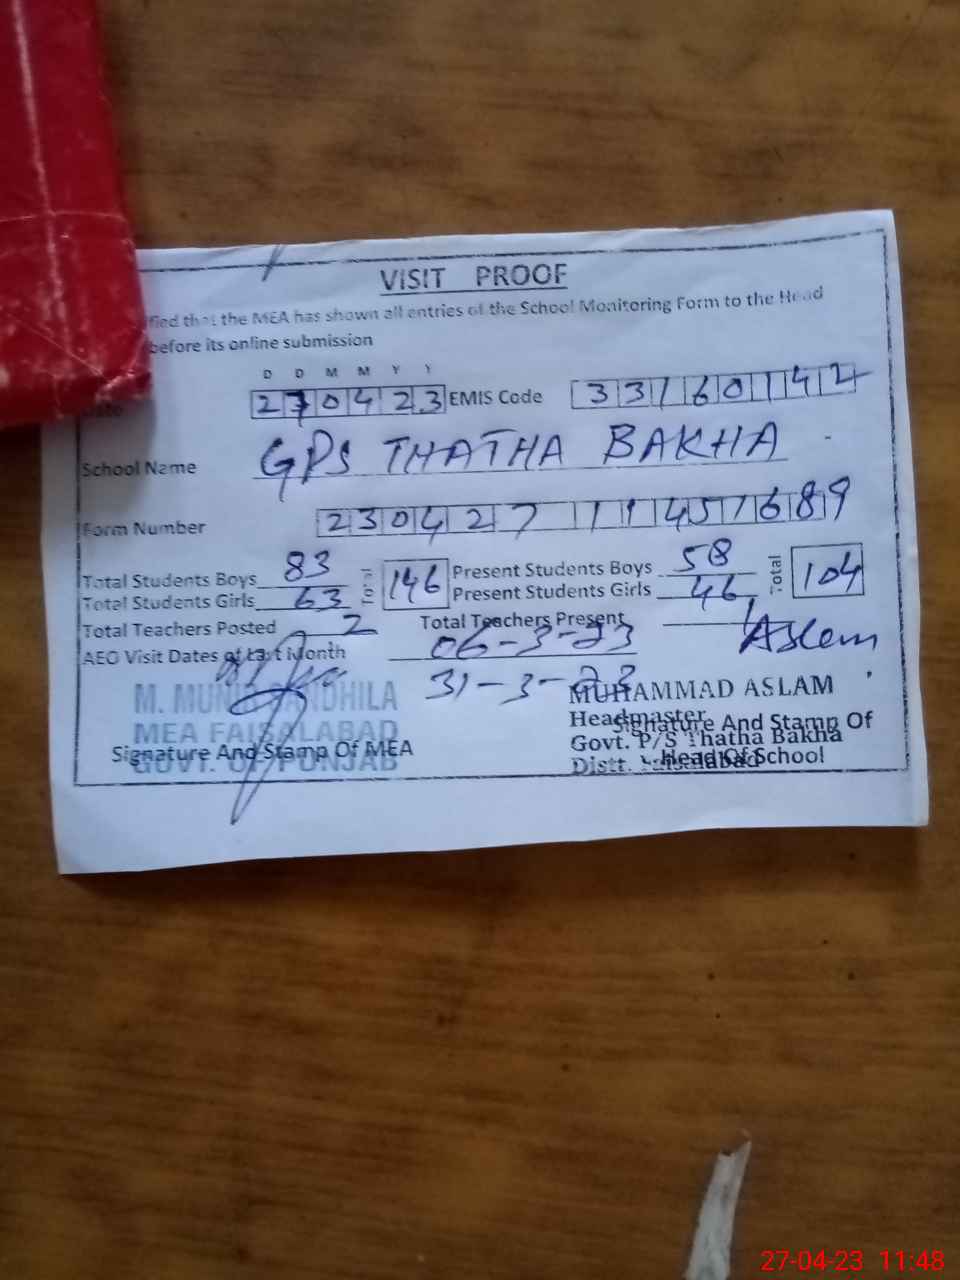 VISIT PROOF
that the MEA has shown all entries of the School Monitoring Form to the Head
before its online submission
D D M M Y Y
270423 EMIS Code 33160142
School Name GPS THATHA BAKHA
Form Number 230427 11451689
Total Students Boys 83 146 Present Students Boys 58 Total 104
Total Students Girls 63 Present Students Girls 46
Total Teachers Posted 2 Total Teachers Present
AEO Visit Dates of Last Month 06-3-23 Aslem
31-3-23
M. MUNIR SANDHILA
MEA FAISALABAD
GOVT. OF PUNJAB
Signature And Stamp Of MEA
MUHAMMAD ASLAM
Headmaster
Govt. P/S Thatha Bakha
Distt. Faisalabad
Signature And Stamp Of
Head Of School
27-04-23 11:48